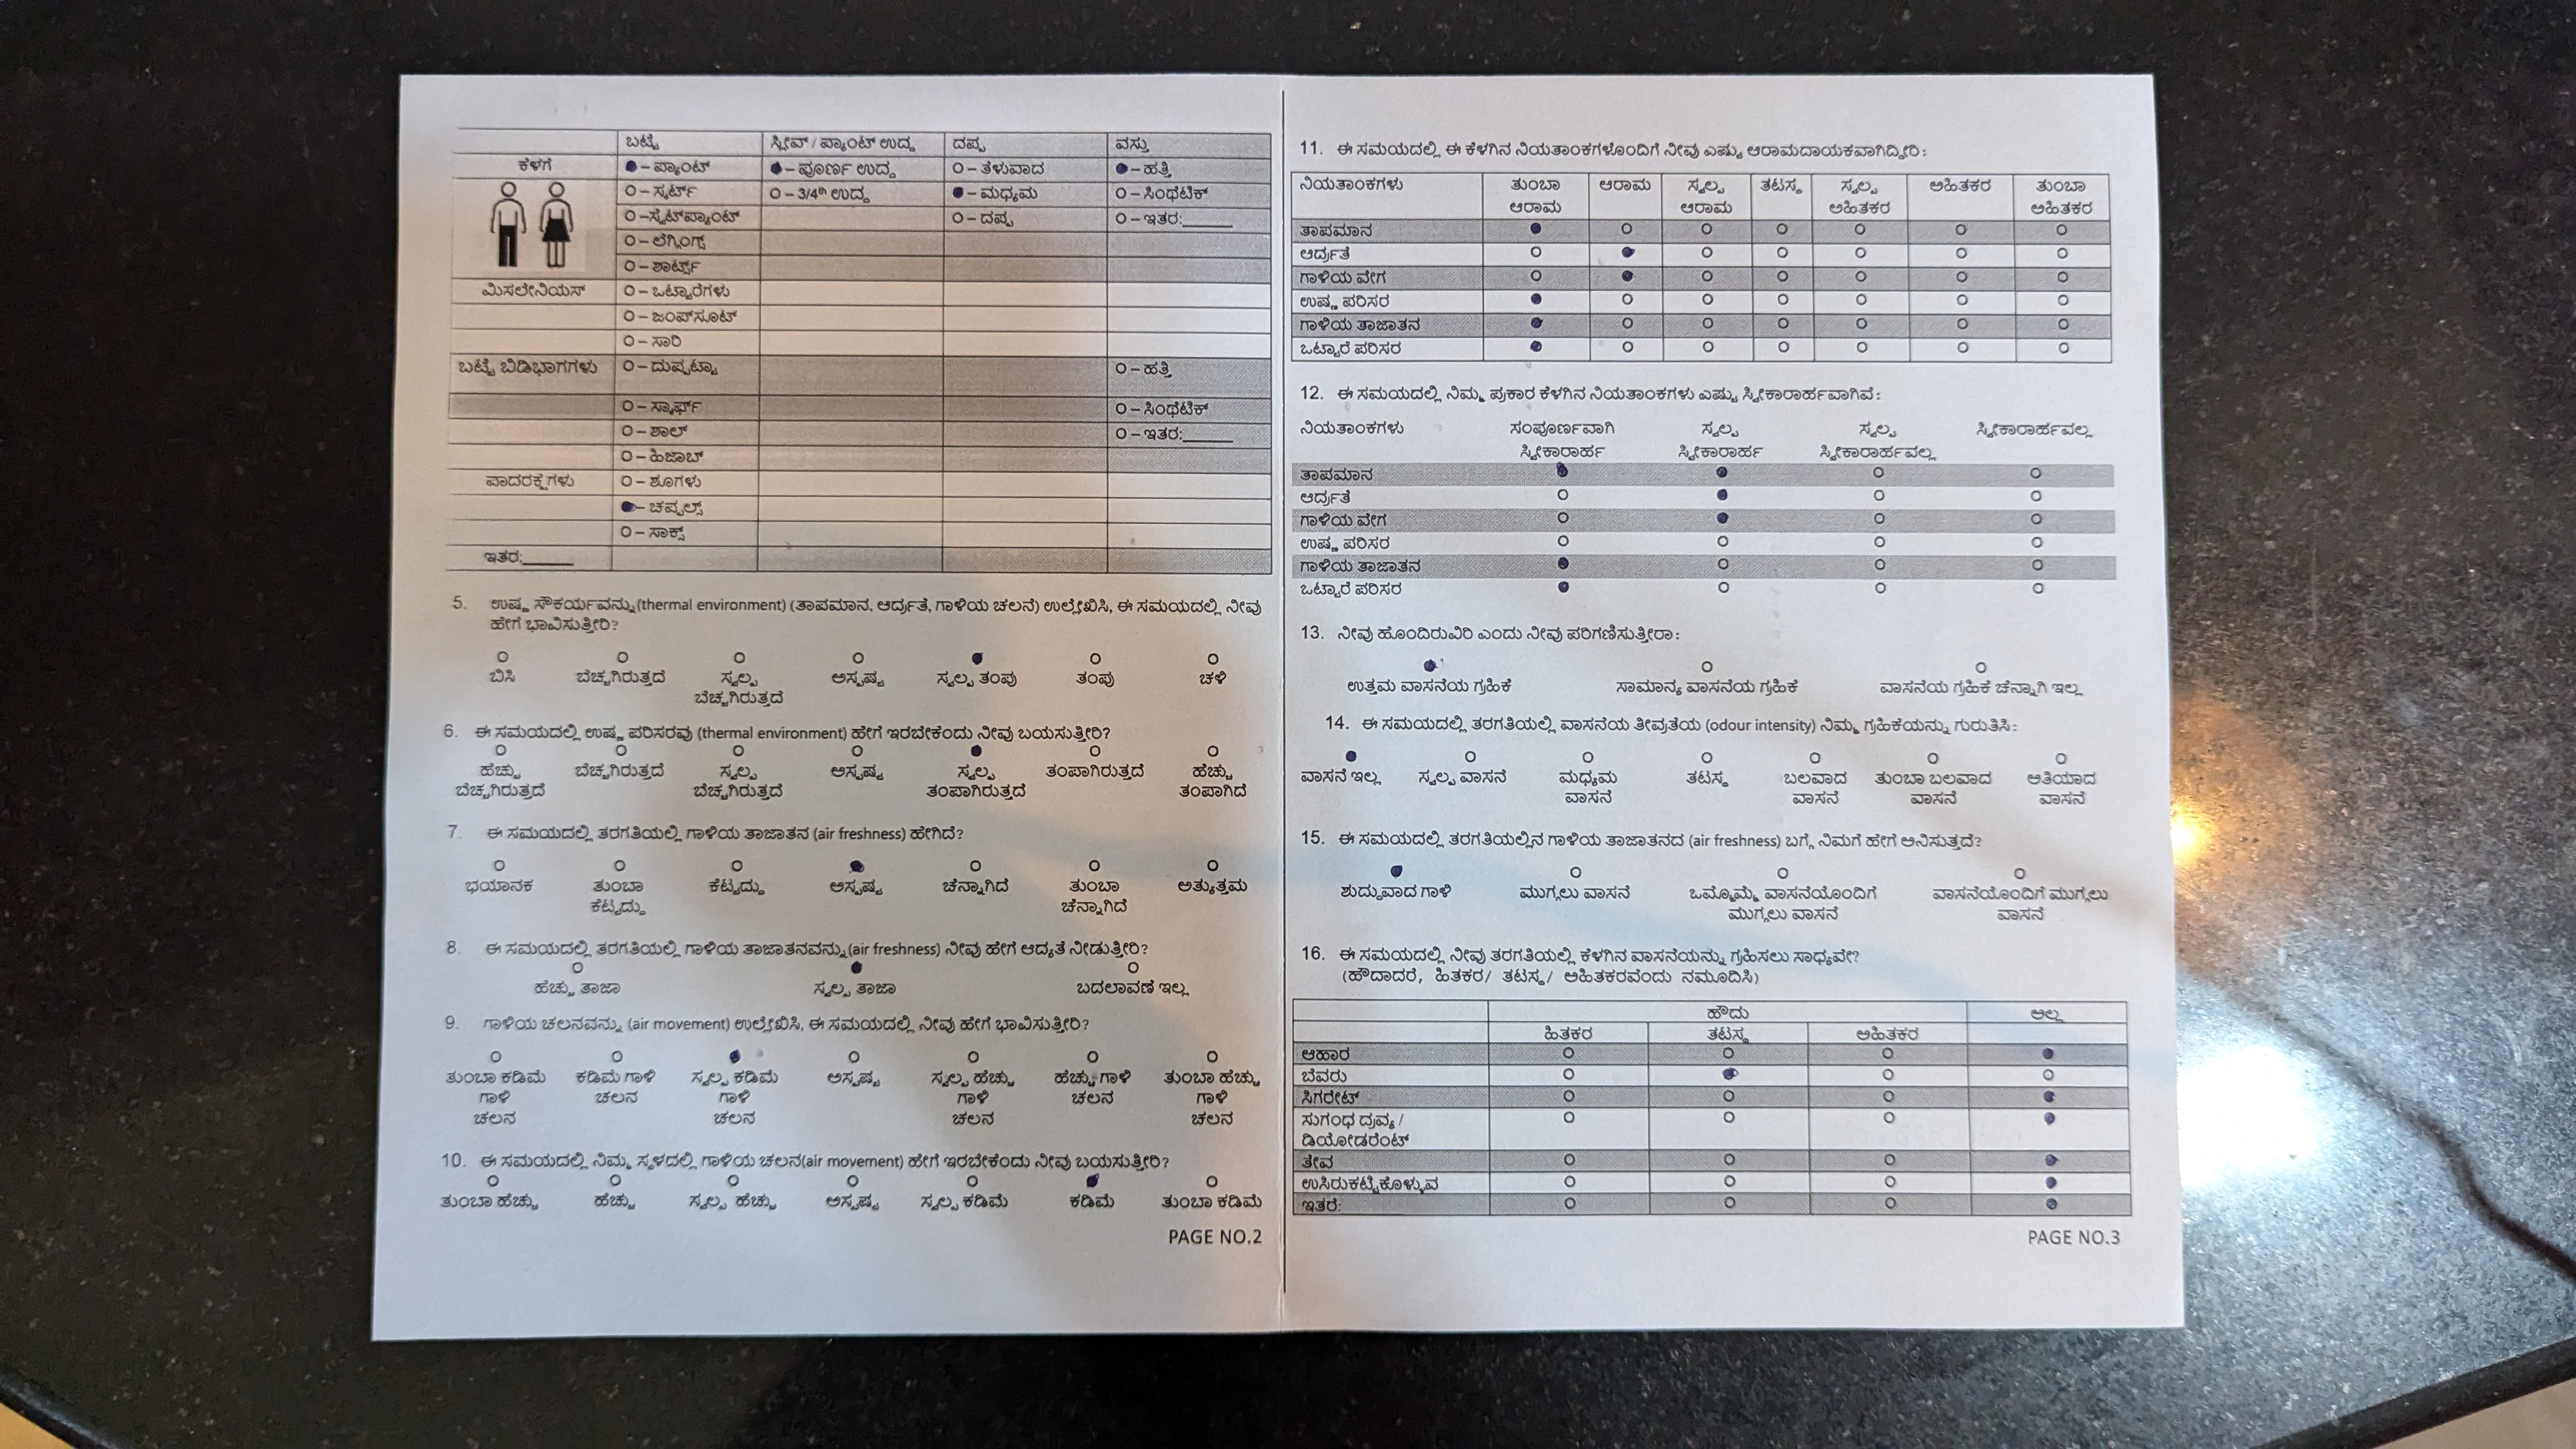 ಬಟ್ಟೆ ಸ್ಲೀವ್ / ಪ್ಯಾಂಟ್ ಉದ್ದ ದಪ್ಪ ವಸ್ತು
ಕೆಳಗೆ ●– ಪ್ಯಾಂಟ್ ●– ಪೂರ್ಣ ಉದ್ದ O – ತೆಳುವಾದ ●– ಹತ್ತಿ
O – ಸ್ಕರ್ಟ್ O – 3/4th ಉದ್ದ ●– ಮಧ್ಯಮ O – ಸಿಂಥೆಟಿಕ್
O –ಸ್ವೆಟ್‌ಪ್ಯಾಂಟ್ O – ದಪ್ಪ O – ಇತರ:______
O – ಲೆಗ್ಗಿಂಗ್ಸ್
O – ಶಾರ್ಟ್ಸ್
ಮಿಸಲೇನಿಯಸ್ O – ಒಟ್ಟಾರೆಗಳು
O – ಜಂಪ್‌ಸೂಟ್
O – ಸಾರಿ
ಬಟ್ಟೆ ಬಿಡಿಭಾಗಗಳು O – ದುಪ್ಪಟ್ಟಾ O – ಹತ್ತಿ
O – ಸ್ಕಾರ್ಫ್ O – ಸಿಂಥೆಟಿಕ್
O – ಶಾಲ್ O – ಇತರ:______
O – ಹಿಜಾಬ್
ಪಾದರಕ್ಷೆಗಳು O – ಶೂಗಳು
●– ಚಪ್ಪಲ್ಸ್
O – ಸಾಕ್ಸ್
ಇತರ:______
5. ಉಷ್ಣ ಸೌಕರ್ಯವನ್ನು (thermal environment) (ತಾಪಮಾನ, ಆರ್ದ್ರತೆ, ಗಾಳಿಯ ಚಲನೆ) ಉಲ್ಲೇಖಿಸಿ, ಈ ಸಮಯದಲ್ಲಿ ನೀವು
ಹೇಗೆ ಭಾವಿಸುತ್ತೀರಿ?
ಬಿಸಿ ಬೆಚ್ಚಗಿರುತ್ತದೆ ಸ್ವಲ್ಪ ಅಸ್ಪಷ್ಟ ಸ್ವಲ್ಪ ತಂಪು ತಂಪು ಚಳಿ
ಬೆಚ್ಚಗಿರುತ್ತದೆ
6. ಈ ಸಮಯದಲ್ಲಿ ಉಷ್ಣ ಪರಿಸರವು (thermal environment) ಹೇಗೆ ಇರಬೇಕೆಂದು ನೀವು ಬಯಸುತ್ತೀರಿ?
ಹೆಚ್ಚು ಬೆಚ್ಚಗಿರುತ್ತದೆ ಸ್ವಲ್ಪ ಅಸ್ಪಷ್ಟ ಸ್ವಲ್ಪ ತಂಪಾಗಿರುತ್ತದೆ ಹೆಚ್ಚು
ಬೆಚ್ಚಗಿರುತ್ತದೆ ಬೆಚ್ಚಗಿರುತ್ತದೆ ತಂಪಾಗಿರುತ್ತದೆ ತಂಪಾಗಿದೆ
7. ಈ ಸಮಯದಲ್ಲಿ ತರಗತಿಯಲ್ಲಿ ಗಾಳಿಯ ತಾಜಾತನ (air freshness) ಹೇಗಿದೆ?
ಭಯಾನಕ ತುಂಬಾ ಕೆಟ್ಟದ್ದು ಅಸ್ಪಷ್ಟ ಚೆನ್ನಾಗಿದೆ ತುಂಬಾ ಅತ್ಯುತ್ತಮ
ಕೆಟ್ಟದ್ದು ಚೆನ್ನಾಗಿದೆ
8. ಈ ಸಮಯದಲ್ಲಿ ತರಗತಿಯಲ್ಲಿ ಗಾಳಿಯ ತಾಜಾತನವನ್ನು (air freshness) ನೀವು ಹೇಗೆ ಆದ್ಯತೆ ನೀಡುತ್ತೀರಿ?
ಹೆಚ್ಚು ತಾಜಾ ಸ್ವಲ್ಪ ತಾಜಾ ಬದಲಾವಣೆ ಇಲ್ಲ
9. ಗಾಳಿಯ ಚಲನವನ್ನು (air movement) ಉಲ್ಲೇಖಿಸಿ, ಈ ಸಮಯದಲ್ಲಿ ನೀವು ಹೇಗೆ ಭಾವಿಸುತ್ತೀರಿ?
ತುಂಬಾ ಕಡಿಮೆ ಕಡಿಮೆ ಗಾಳಿ ಸ್ವಲ್ಪ ಕಡಿಮೆ ಅಸ್ಪಷ್ಟ ಸ್ವಲ್ಪ ಹೆಚ್ಚು ಹೆಚ್ಚು ಗಾಳಿ ತುಂಬಾ ಹೆಚ್ಚು
ಗಾಳಿ ಚಲನ ಗಾಳಿ ಗಾಳಿ ಚಲನ ಗಾಳಿ
ಚಲನ ಚಲನ ಚಲನ ಚಲನ
10. ಈ ಸಮಯದಲ್ಲಿ ನಿಮ್ಮ ಸ್ಥಳದಲ್ಲಿ ಗಾಳಿಯ ಚಲನ(air movement) ಹೇಗೆ ಇರಬೇಕೆಂದು ನೀವು ಬಯಸುತ್ತೀರಿ?
ತುಂಬಾ ಹೆಚ್ಚು ಹೆಚ್ಚು ಸ್ವಲ್ಪ ಹೆಚ್ಚು ಅಸ್ಪಷ್ಟ ಸ್ವಲ್ಪ ಕಡಿಮೆ ಕಡಿಮೆ ತುಂಬಾ ಕಡಿಮೆ
PAGE NO.2
11. ಈ ಸಮಯದಲ್ಲಿ ಈ ಕೆಳಗಿನ ನಿಯತಾಂಕಗಳೊಂದಿಗೆ ನೀವು ಎಷ್ಟು ಆರಾಮದಾಯಕವಾಗಿದ್ದೀರಿ:
ನಿಯತಾಂಕಗಳು ತುಂಬಾ ಆರಾಮ ಸ್ವಲ್ಪ ತಟಸ್ಥ ಸ್ವಲ್ಪ ಅಹಿತಕರ ತುಂಬಾ
ಆರಾಮ ಆರಾಮ ಅಹಿತಕರ ಅಹಿತಕರ
ತಾಪಮಾನ
ಆರ್ದ್ರತೆ
ಗಾಳಿಯ ವೇಗ
ಉಷ್ಣ ಪರಿಸರ
ಗಾಳಿಯ ತಾಜಾತನ
ಒಟ್ಟಾರೆ ಪರಿಸರ
12. ಈ ಸಮಯದಲ್ಲಿ ನಿಮ್ಮ ಪ್ರಕಾರ ಕೆಳಗಿನ ನಿಯತಾಂಕಗಳು ಎಷ್ಟು ಸ್ವೀಕಾರಾರ್ಹವಾಗಿವೆ:
ನಿಯತಾಂಕಗಳು ಸಂಪೂರ್ಣವಾಗಿ ಸ್ವಲ್ಪ ಸ್ವಲ್ಪ ಸ್ವೀಕಾರಾರ್ಹವಲ್ಲ
ಸ್ವೀಕಾರಾರ್ಹ ಸ್ವೀಕಾರಾರ್ಹ ಸ್ವೀಕಾರಾರ್ಹವಲ್ಲ
ತಾಪಮಾನ
ಆರ್ದ್ರತೆ
ಗಾಳಿಯ ವೇಗ
ಉಷ್ಣ ಪರಿಸರ
ಗಾಳಿಯ ತಾಜಾತನ
ಒಟ್ಟಾರೆ ಪರಿಸರ
13. ನೀವು ಹೊಂದಿರುವಿರಿ ಎಂದು ನೀವು ಪರಿಗಣಿಸುತ್ತೀರಾ:
ಉತ್ತಮ ವಾಸನೆಯ ಗ್ರಹಿಕೆ ಸಾಮಾನ್ಯ ವಾಸನೆಯ ಗ್ರಹಿಕೆ ವಾಸನೆಯ ಗ್ರಹಿಕೆ ಚೆನ್ನಾಗಿ ಇಲ್ಲ
14. ಈ ಸಮಯದಲ್ಲಿ ತರಗತಿಯಲ್ಲಿ ವಾಸನೆಯ ತೀವ್ರತೆಯ (odour intensity) ನಿಮ್ಮ ಗ್ರಹಿಕೆಯನ್ನು ಗುರುತಿಸಿ:
ವಾಸನೆ ಇಲ್ಲ ಸ್ವಲ್ಪ ವಾಸನೆ ಮಧ್ಯಮ ತಟಸ್ಥ ಬಲವಾದ ತುಂಬಾ ಬಲವಾದ ಅತಿಯಾದ
ವಾಸನೆ ವಾಸನೆ ವಾಸನೆ ವಾಸನೆ
15. ಈ ಸಮಯದಲ್ಲಿ ತರಗತಿಯಲ್ಲಿನ ಗಾಳಿಯ ತಾಜಾತನದ (air freshness) ಬಗ್ಗೆ ನಿಮಗೆ ಹೇಗೆ ಅನಿಸುತ್ತದೆ?
ಶುದ್ಧವಾದ ಗಾಳಿ ಮುಗ್ಗಲು ವಾಸನೆ ಒಮ್ಮೊಮ್ಮೆ ವಾಸನೆಯೊಂದಿಗೆ ವಾಸನೆಯೊಂದಿಗೆ ಮುಗ್ಗಲು
ಮುಗ್ಗಲು ವಾಸನೆ ವಾಸನೆ
16. ಈ ಸಮಯದಲ್ಲಿ ನೀವು ತರಗತಿಯಲ್ಲಿ ಕೆಳಗಿನ ವಾಸನೆಯನ್ನು ಗ್ರಹಿಸಲು ಸಾಧ್ಯವೇ?
(ಹೌದಾದರೆ, ಹಿತಕರ/ ತಟಸ್ಥ/ ಅಹಿತಕರವೆಂದು ನಮೂದಿಸಿ)
ಹೌದು ಅಲ್ಲ
ಹಿತಕರ ತಟಸ್ಥ ಅಹಿತಕರ
ಆಹಾರ
ಬೆವರು
ಸಿಗರೇಟ್
ಸುಗಂಧ ದ್ರವ್ಯ /
ಡಿಯೋಡರೆಂಟ್
ತೇವ
ಉಸಿರುಕಟ್ಟಿಕೊಳ್ಳುವ
ಇತರೆ:
PAGE NO.3